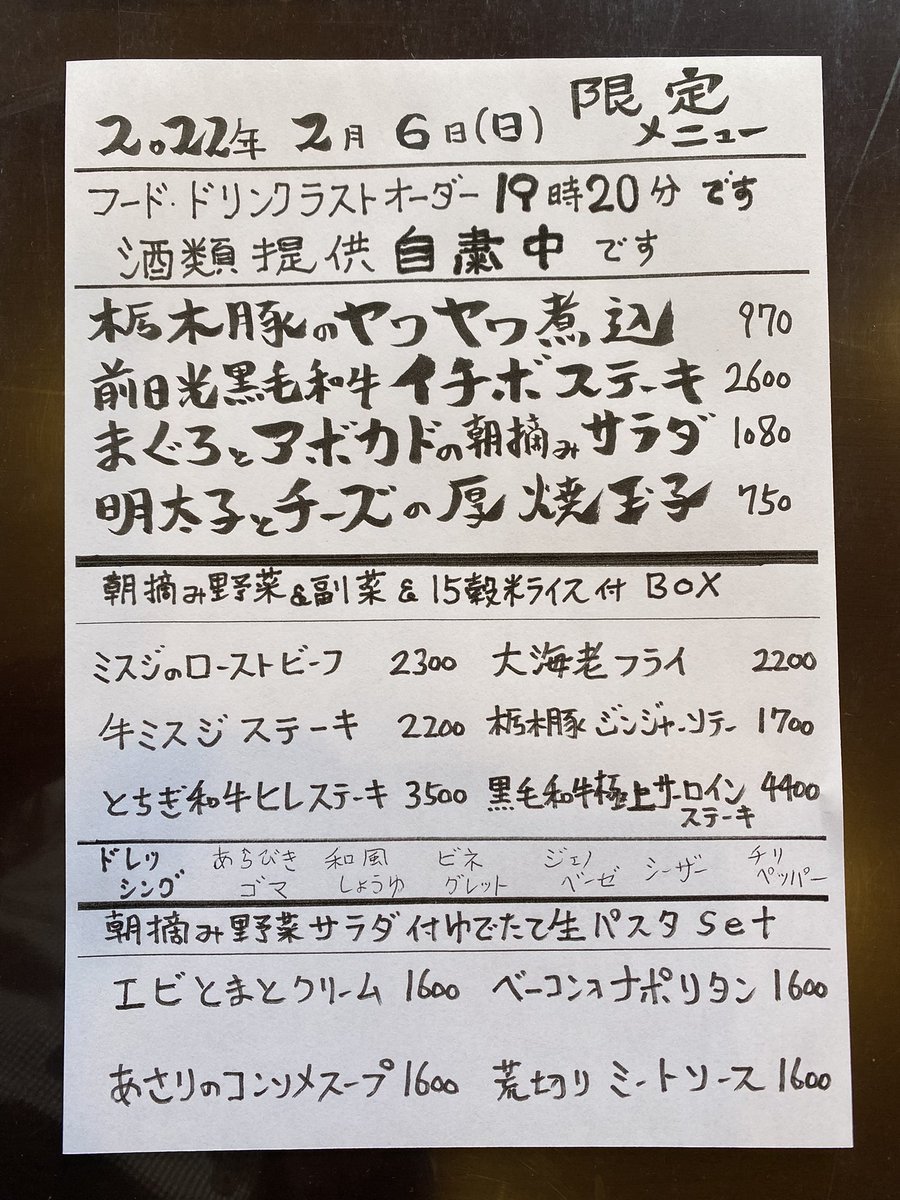 2022年 2月 6日(日) 限定メニュー
フード・ドリンクラストオーダー 19時20分 です
酒類提供 自粛中 です
栃木豚のヤワヤワ煮込 970
前日光黒毛和牛イチボステーキ 2600
まぐろとアボカドの朝摘みサラダ 1080
明太子とチーズの厚焼玉子 750
朝摘み野菜&副菜&15穀米ライス付 BOX
ミスジのローストビーフ 2300 大海老フライ 2200
牛ミスジステーキ 2200 栃木豚ジンジャーソテー 1700
とちぎ和牛ヒレステーキ 3500 黒毛和牛極上サーロインステーキ 4400
ドレッシング あらびきゴマ 和風しょうゆ ビネグレット ジェノベーゼ シーザー チリペッパー
朝摘み野菜サラダ付ゆでたて生パスタ Set
エビとまとクリーム 1600 ベーコンオナポリタン 1600
あさりのコンソメスープ 1600 荒切りミートソース 1600